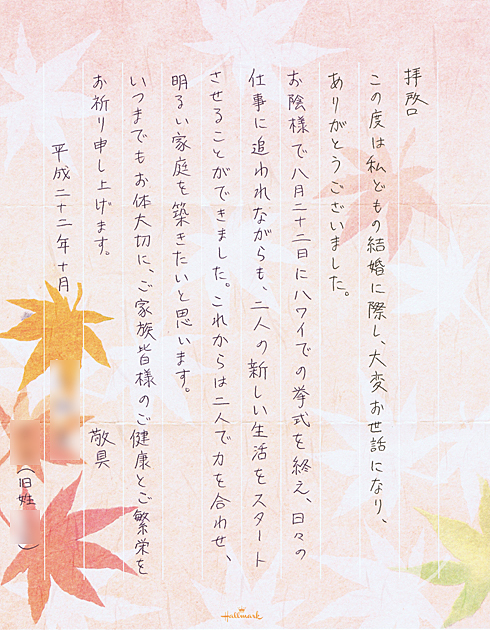 拝啓
この度は私どもの結婚に際し、大変お世話になり、
ありがとうございました。
お陰様で八月二十二日にハワイでの挙式を終え、日々の
仕事に追われながらも、二人の新しい生活をスタート
させることができました。これからは二人で力を合わせ、
明るい家庭を築きたいと思います。
いつまでもお体大切に、ご家族皆様のご健康とご繁栄を
お祈り申し上げます。
敬具
平成二十二年十月
（旧姓　）
Hallmark